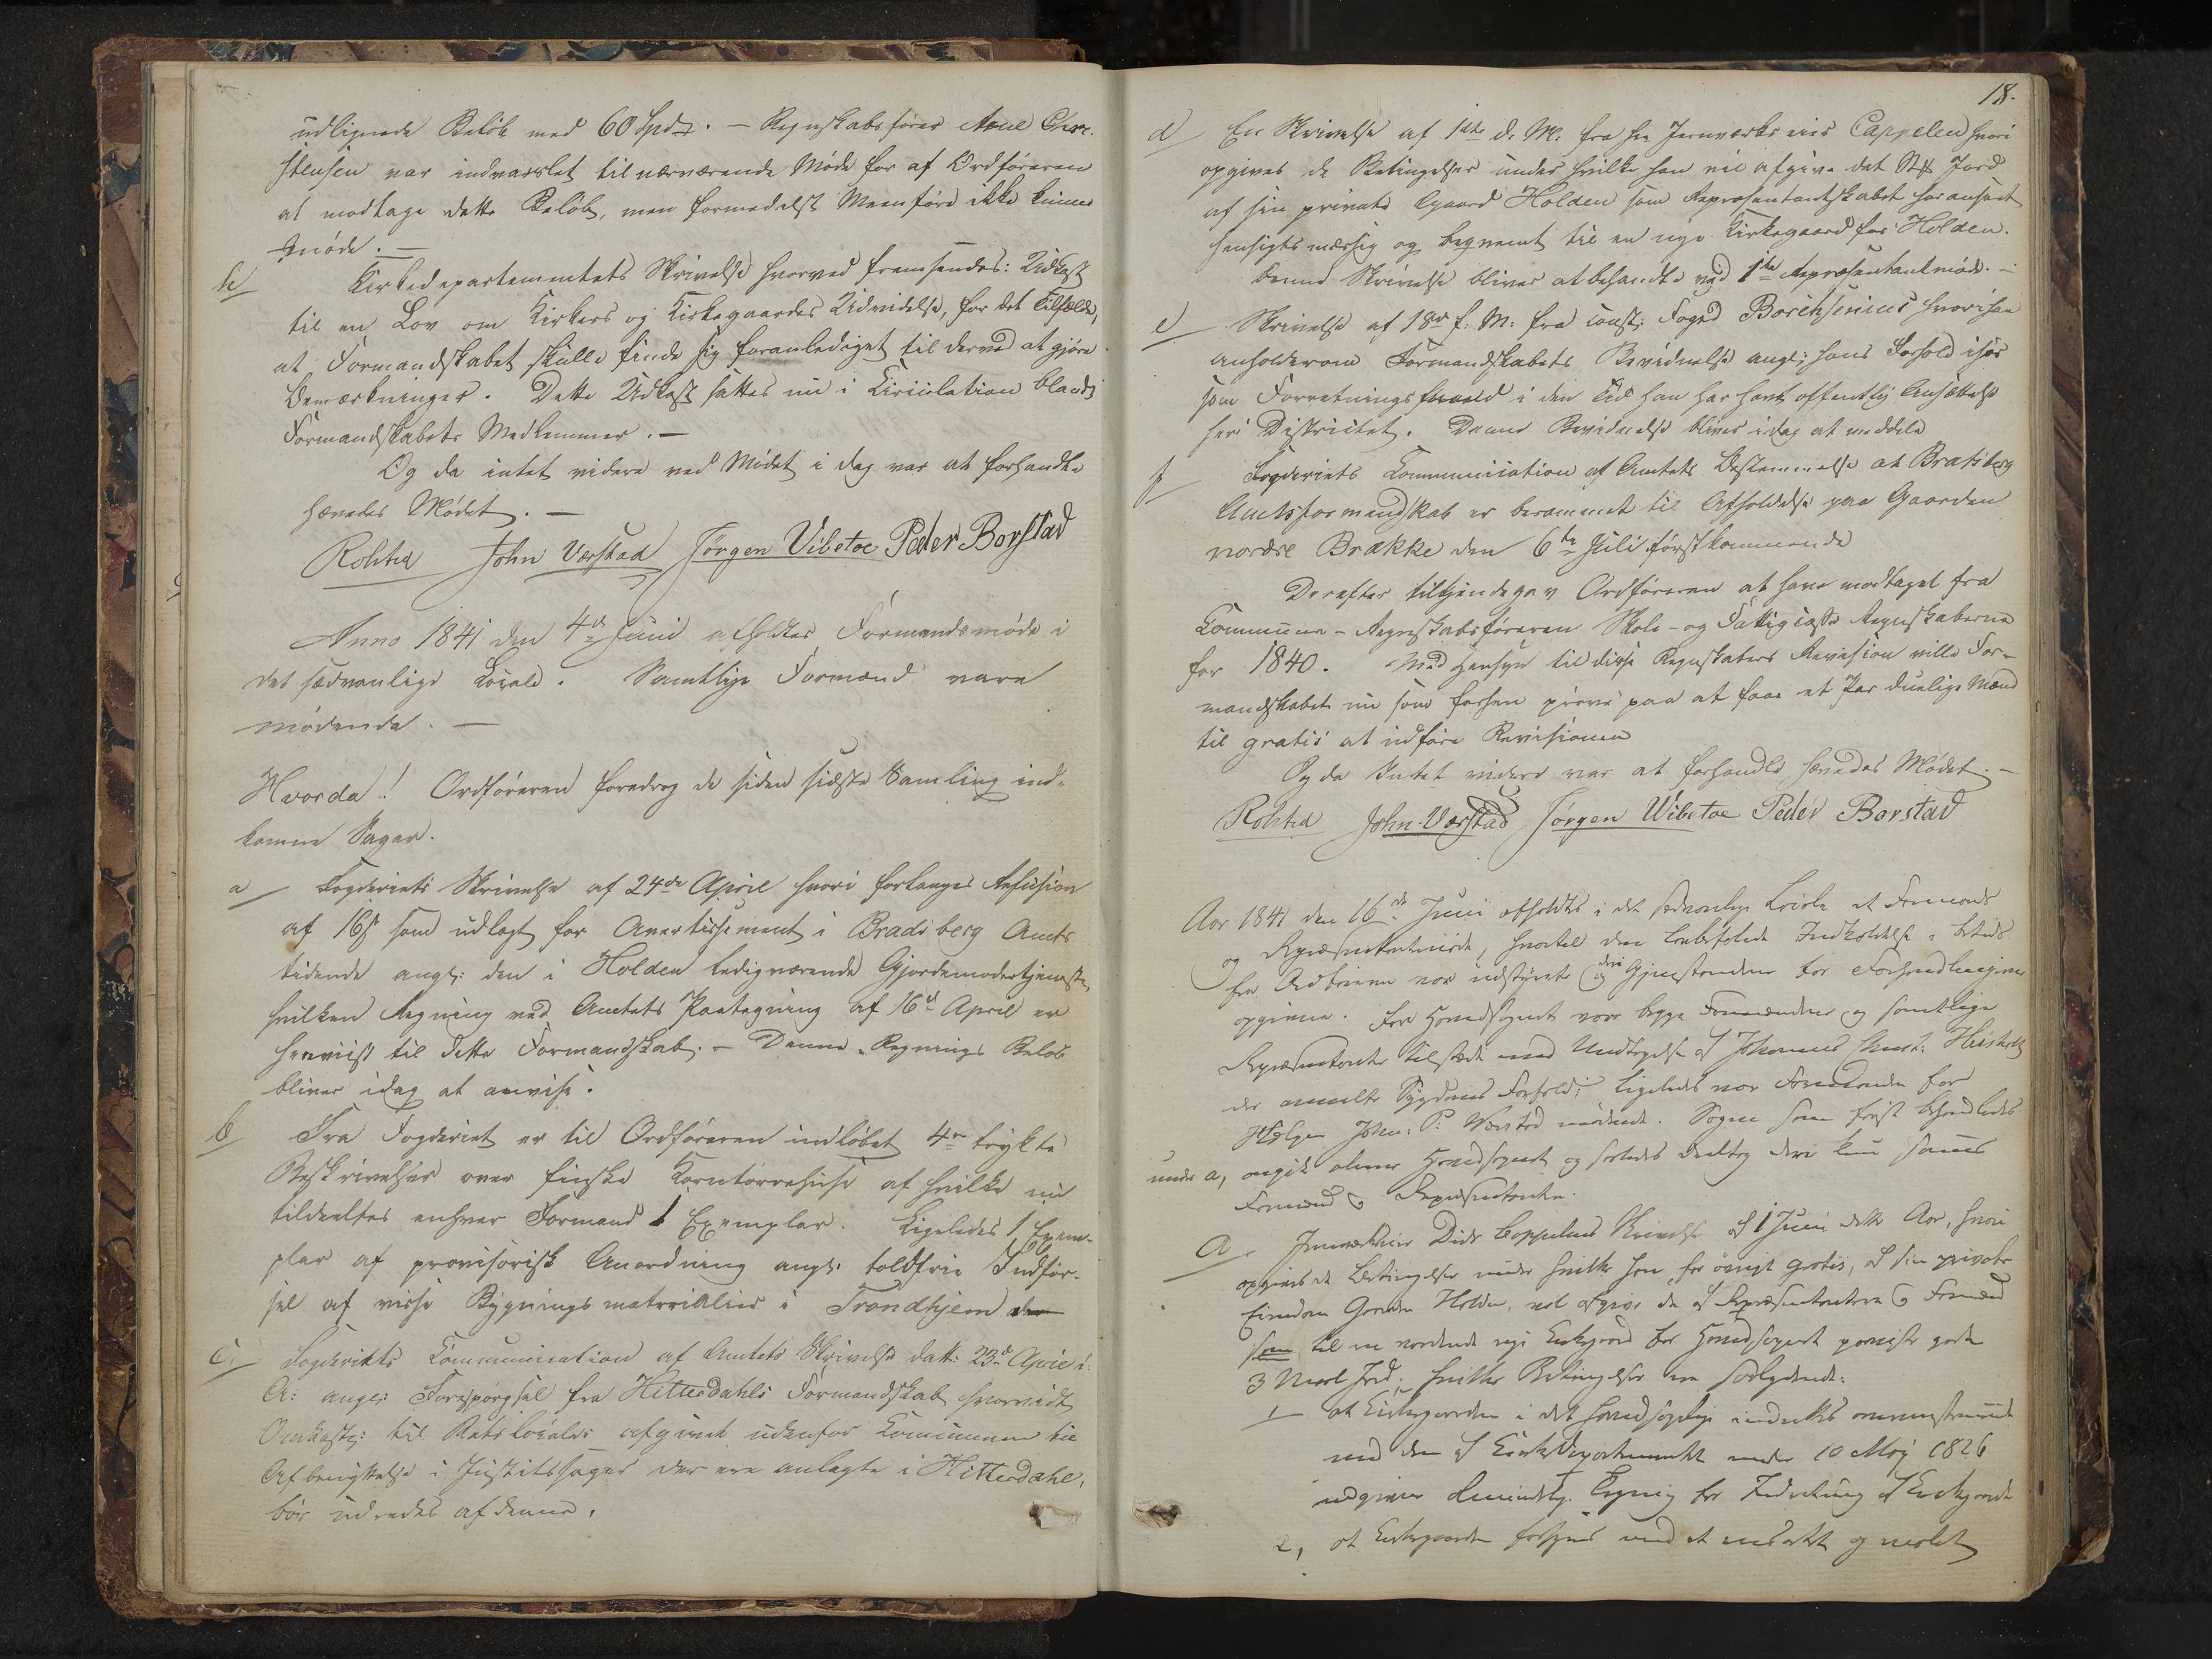 udlignede Beløb med 60 Spd. — Regnskabsfører Aune Chri-
stensen var indvarslet til nærværende Møde for af Ordføreren
at modtage dette Beløb, men formedelst Meenføre ikke kunne
møde. —
h/ Kirkedepartementets Skrivelse hvorved fremsendes: Udkast
til en Lov om Kirkers og Kirkegaardes Udvidelse, for det Tilfælde,
at Formandskabet skulle finde sig foranlediget til derved at gjøre
Bemærkninger. Dette Udkast sættes nu i Circulation blandt
Formandskabets Medlemmer. —
Og da intet videre ved Mødet i dag var at forhandle
hævedes Mødet. —
Rolsted John Værstad Jørgen Vibetoe Peder Borstad
Anno 1841 den 4de Juni afholdtes Formandsmøde i
det sædvanlige Locale. Samtlige Formænd vare
mødende. —
Hvorda! Ordføreren foredrog de siden sidste Samling ind-
komne Sager.
a/ Fogderiets Skrivelse af 24de April hvori forlanges Refusion
af 16 s som udlagt for Avertissement i Bradsberg Amts
tidende angl: den i Holden ledigværende Gjordemodertjeneste,
hvilken Regning ved Amtets Paategning af 16d April er
henviist til dette Formandskab. — Denne Regnings Beløb
bliver idag at anvise.
b/ Fra Fogderiet er til Ordføreren indløbet 4re trykte
Beskrivelser over finske Korntørrehuse af hvilke nu
tildeeltes enhver Formand 1 Exemplar. Ligeledes 1 Exem-
plar af provisorisk Anordning angl: toldfrie Indfør-
sel af visse Bygningsmaterialier i Trondhjem
c/ Fogderiets Communication af Amtets Skrivelse dat: 23d April d:
A: angl: Forespørgsel fra Hitterdahls Formandskab hvorvidt
Omkostg: til Retslocaler afgivet udenfor Communen til
Afbenyttelse i Justitssager der ere anlagte i Hitterdahl,
bør udredes af denne.
18.
d/ En Skrivelse af 1ste d: M: fra Hr Jernværkseier Cappelen hvori
opgives de Betingelser under hvilke han vil afgive det Stk Jord
af sin private Egaard Holden som Repræsentantskabet har anseet
hensigtsmæssig og beqvemt til en nye Kirkegaard for Holden.
Denne Skrivelse bliver at behandle ved 1ste Repræsentantmøde. —
e/ Skrivelse af 18de f: M: fra const: Foged Borchsenius hvori han
anholder om Formandskabets Bevidnelse angl: hans Forhold især
som Forretningsmand i den Tid han har havt offentlig Ansættelse
her i Districtet. Denne Bevidnelse bliver idag at meddele
f/ Fogderiets Communication af Amtets Bestemmelse at Bratsberg
Amtsformandskab er berammet til Afholdelse paa Gaarden
nordre Brække den 6te Juli førstkommende
Derefter tilkjendegav Ordføreren at have modtaget fra
Commune-Regnskabsføreren Skole- og Fattigcasse Regnskaberne
for 1840. Med Hensyn til disse Regnskabers Revision ville For-
mandskabet nu som forhen prøve paa at faae et Par duelige Mænd
til gratis at udføre Revisionen
Og da Intet videre var at forhandle hævedes Mødet. —
Rolsted John Værstad Jørgen Wibetoe Peder Borstad
Aar 1841 den 16de Juni afholdtes i det sædvanlige Locale et Formands
og Repræsentantmøde, hvortil den lovbefalede Indkaldelse i betids
fra Ordføreren var udstædt og deri Gjenstandene for Forhandlingerne
opgivne. For Hovedsognet vare begge Formændene og samtlige
Repræsentanter tilstæde med Undtagelse af Johannes Christ: Heisholt
der anmeldte Sygdoms Forfald; ligeledes var Formanden for
Helgen John P: Værstad mødende. Sagen som først behandledes
under a, angik alene Hovedsognet og saaledes deeltog deri kun sammes
Formænd & Repræsentanter.
a. Jernværkseier Didr Cappelens Skrivelse af 1 Juni dette Aar, hvori
opgives de Betingelser under hvilke han for øvrigt gratis, af sin private
Eiendom Gaarden Holden, vil afgive de af Repræsentanterne & Formænd
som til en vordende nye Kirkegaard for Hovedsognet paaviste gode
3 Maal Jord; hvilke Betingelser ere saalydende:
1 at Kirkegaarden i det hovedsagelige indrettes overensstemmende
med den af Kirkedepartementet under 10 May 1826
udgivne almindelige Regning for Indretning af Kirkegaarde
2, at Kirkegaarden forsynes med et ansat og malet